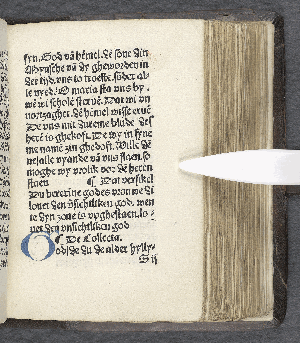 syn. God vā hēmel. de sone din
Mynsche vā dy gheworden in
der tyd. vns to troste. sūder al-
le nyed. O maria sta vns by.
wē wi scholē steruē. Dat wi vn
vortzaghet. de hēmel wisse eruē
De vns mit dureme blude des
herē is ghekoft. De wy in syne
me name zin ghedoft. Wille de
ne alle vyande vā vns slaen. so
moghe wy vrolik vor dē heren
staen ¶ Dat versikel
Du bererine godes wan we di
louet den vnsichliken god. wen
te dyn zone is vpghestaen. lo-
uet den vnsichliken god
¶ De Collecta.
O God / de du de alder hylly-
S ij